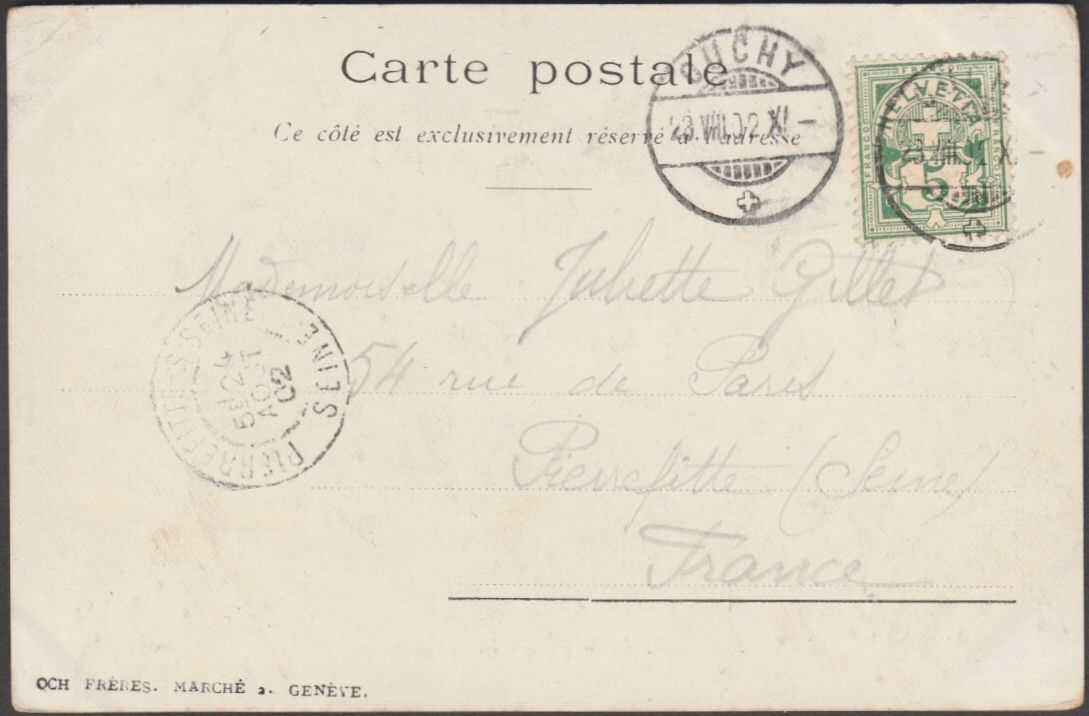 Carte postale
Ce côté est exclusivement réservé à l'adresse
OUCHY
23.VIII.02.XI -
FRANCO
HELVETIA
FRANCO FRANCO
5
23.VIII.02.XI -
Mademoiselle Juliette Gillet
54 rue de Paris
Pierrefitte (Seine)
France
PIERREFITTE-S-SEINE
SEINE
5E 24
AOUT
02
OCH FRÈRES. MARCHÉ 2. GENÈVE.